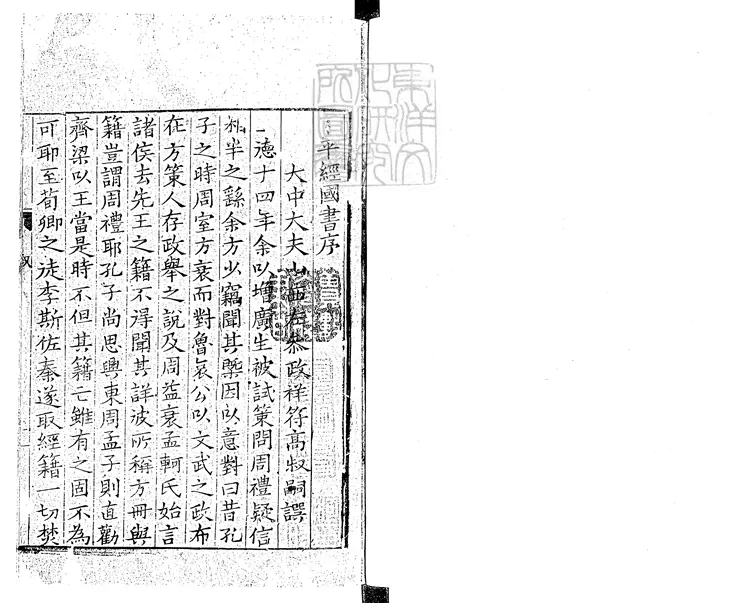 平經國書序
大中大夫山西左叅政祥符高叔嗣譔
德十四年余以增廣生被試策問周禮疑信
相半之繇余方少竊聞其槩因以意對曰昔孔
子之時周室方衰而對魯哀公以文武之政布
在方策人存政舉之說及周益衰孟軻氏始言
諸侯去先王之籍不得聞其詳彼所稱方冊與
籍豈謂周禮耶孔子尚思興東周孟子則直勸
齊梁以王當是時不但其籍亡雖有之固不為
可耶至荀卿之徒李斯佐秦遂取經籍一切焚